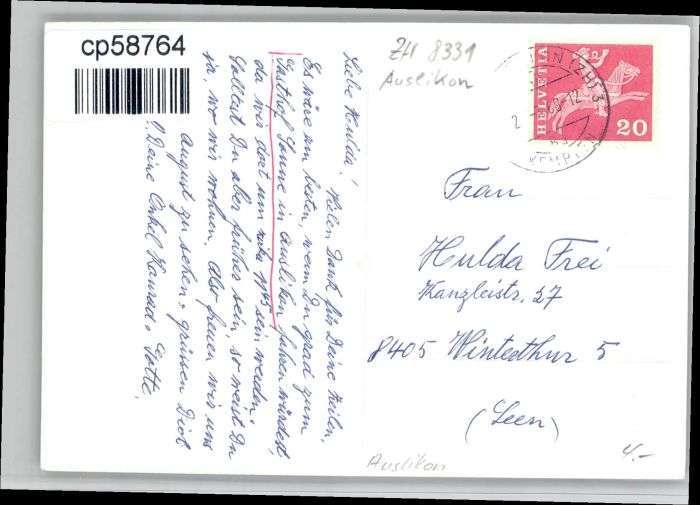 cp58764
ZH 8331
Auslikon
HELVETIA
20
Liebe Hulda! Vielen Dank für Deine Zeilen,
Es wäre am besten, wenn Du grad zum
Gasthof Sonne in Auslikon fahren würdest,
da wir dort um 1145 sein werden.
Solltest Du aber früher sein, so weist Du
ja, wo wir wohnen. Also freuen wir uns
August zu sehen, grüssen Dich
! Deine Onkel Konrad, Gotte,
Frau
Hulda Frei
Kanzleistr. 27
8405 Winterthur 5
(Seen)
Auslikon
4.-